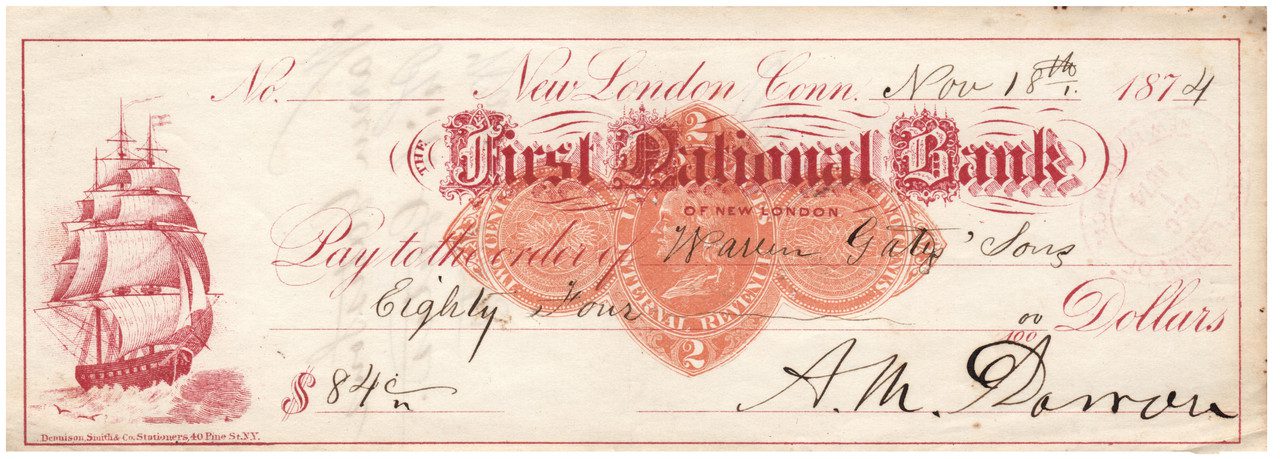 No. New London, Conn. Nov 18th 1874
THE First National Bank
OF NEW LONDON
Pay to the order of Warren Gates' Sons
Eighty Four 00/100 Dollars
$ 84
A. M.
2
INTERNAL REVENUE
2
TWO CENTS
Dennison, Smith & Co. Stationers, 40 Pine St. N.Y.